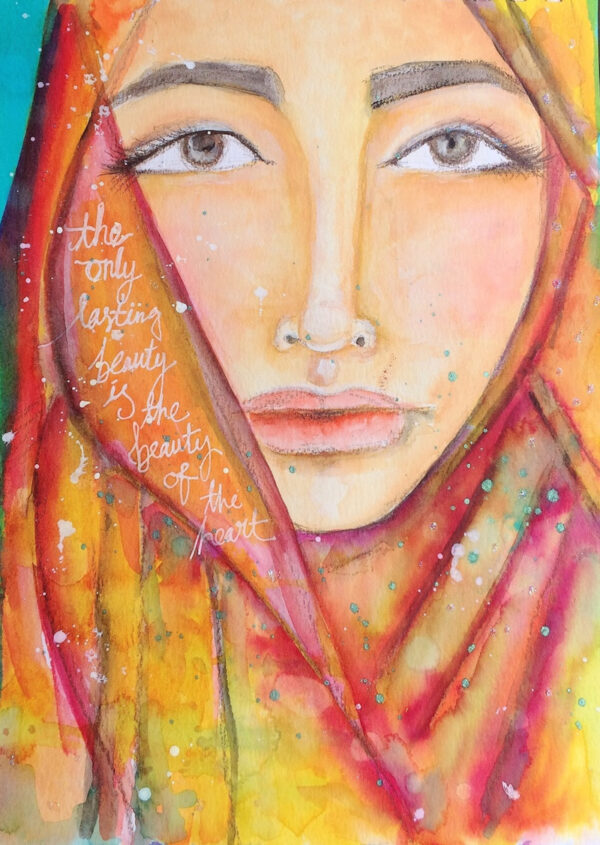 the
only
lasting
beauty
is
the
beauty
of
the
heart